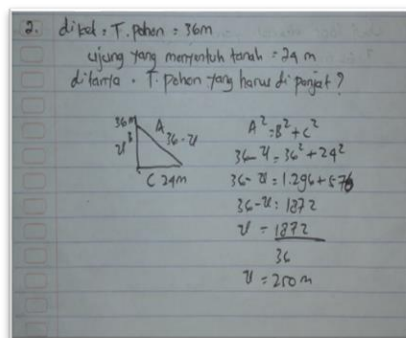 2. diket = T. pohon = 36m
ujung yang menyentuh tanah = 24 m
ditanya = T. pohon yang harus di panjat ?
36m A
B 36-x
x
C 24m
A² = B² + C²
36-x = 36² + 24²
36-x = 1.296 + 576
36-x = 1872
x = 1872
36
x = 250 m